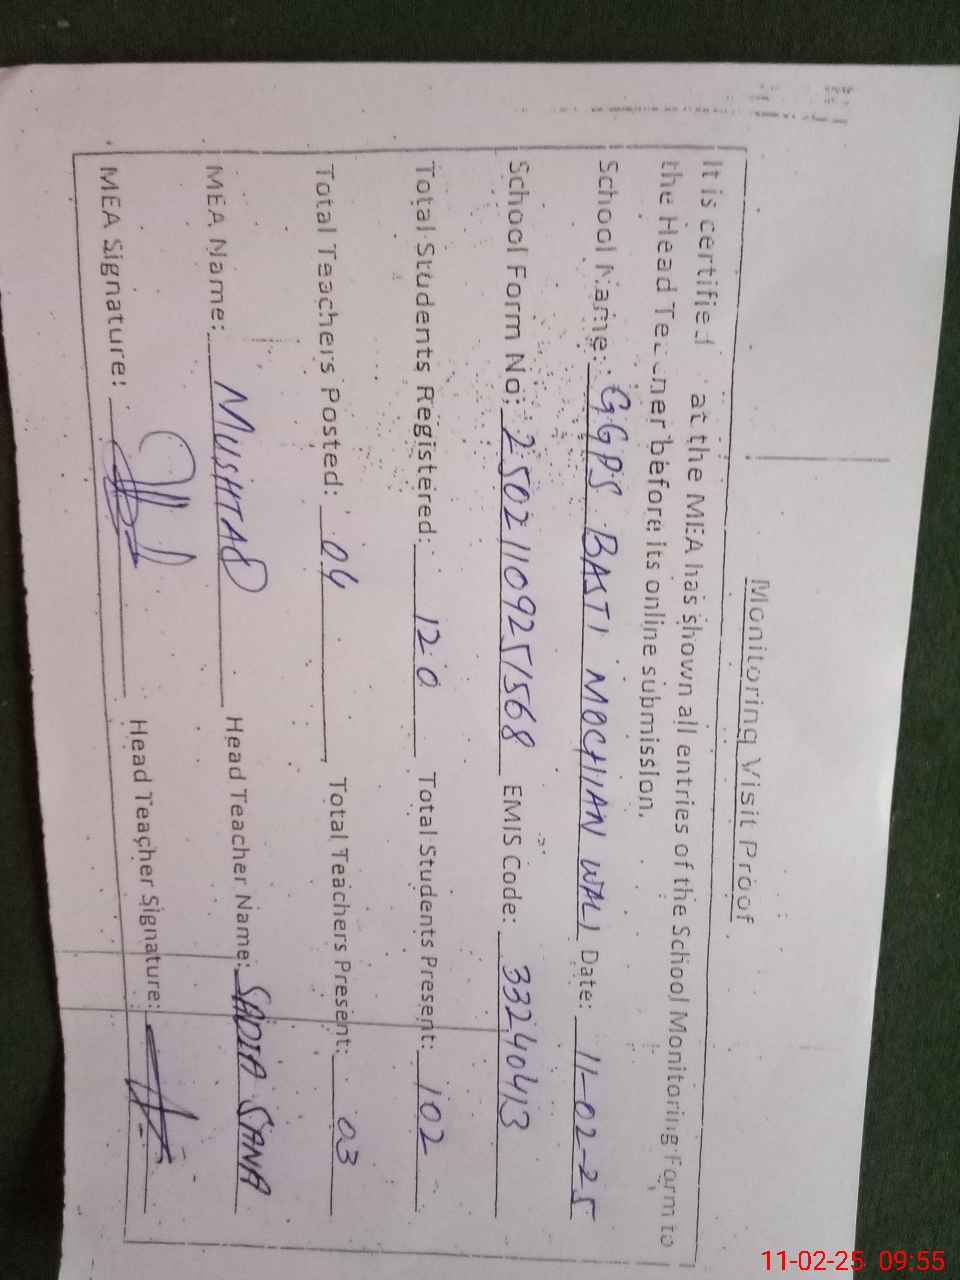 Monitoring Visit Proof
It is certified at the MEA has shown all entries of the School Monitoring Form to
the Head Teacher before its online submission.
School Name: GGPS BASTI MOCHIAN WALI Date: 11-02-25
School Form No: 25021109251568 EMIS Code: 33240413
Total Students Registered: 120 Total Students Present: 102
Total Teachers Posted: 04 Total Teachers Present: 03
MEA Name: MUSHTAQ Head Teacher Name: SADIA SANA
MEA Signature: Head Teacher Signature:
11-02-25 09:55